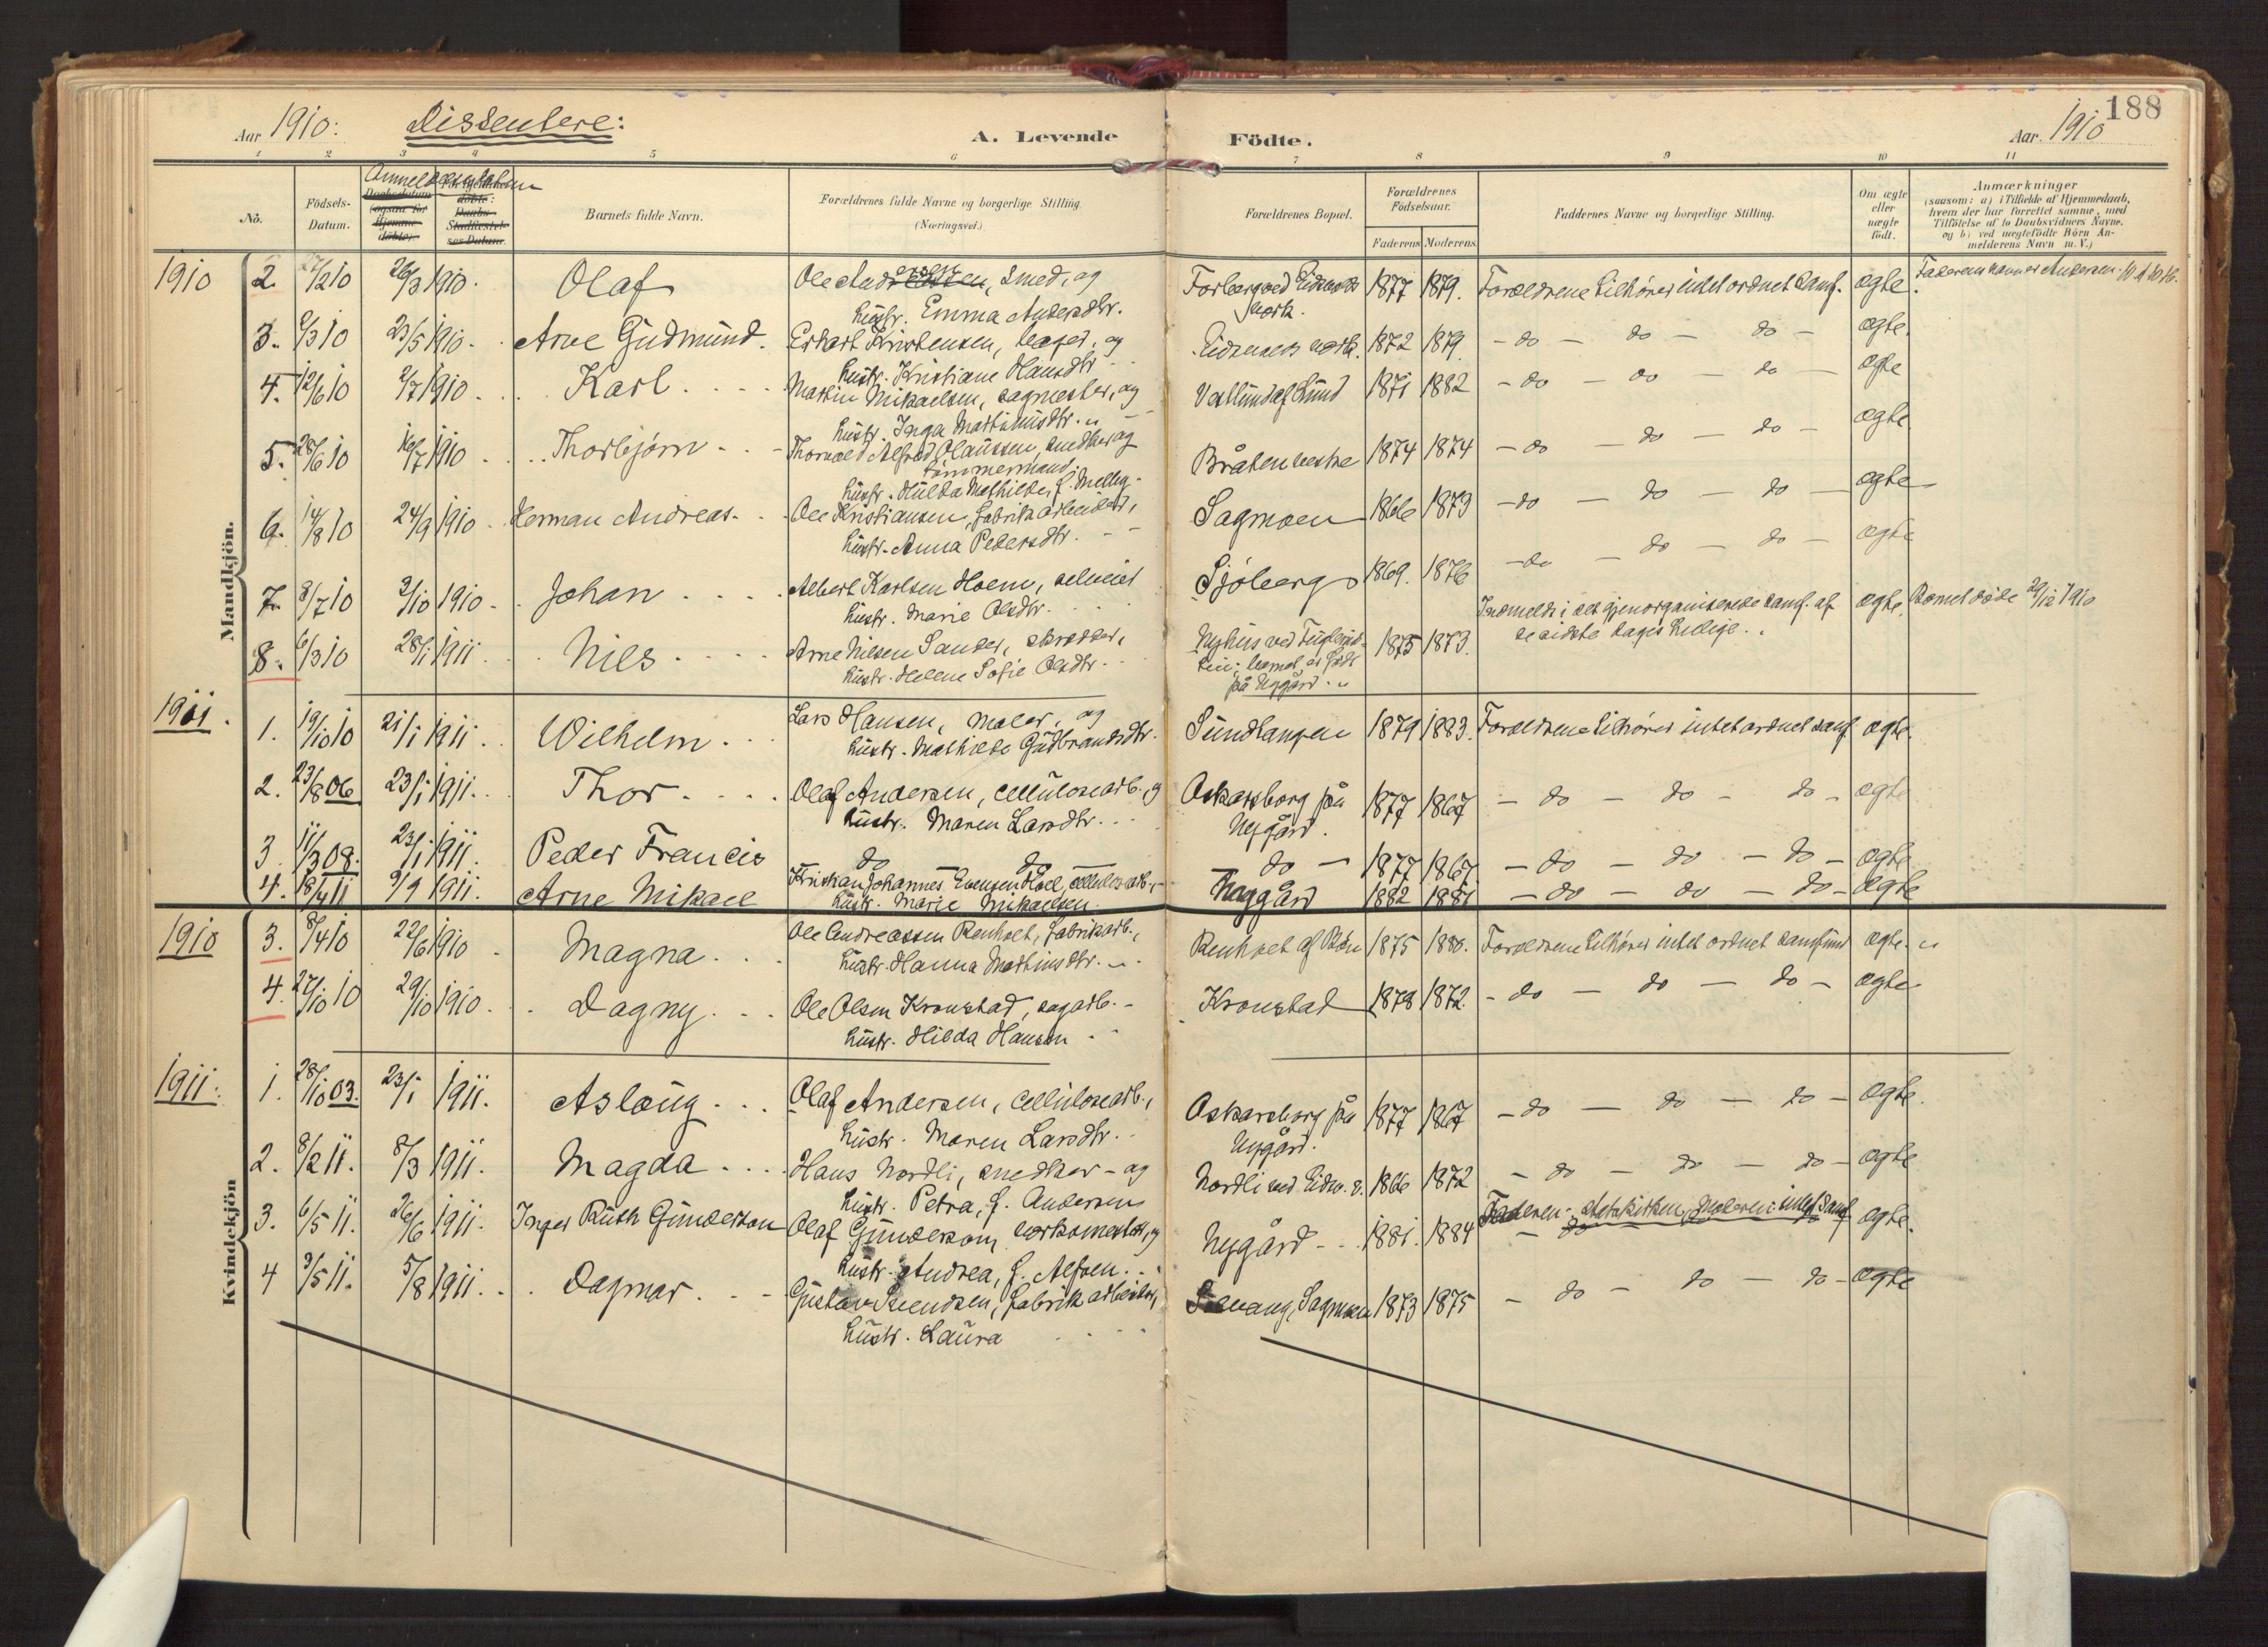 Aar 1910: Dissentere: A. Levende Födte. Aar. 1910 188
1 2 3 4 5 6 7 8 9 10 11
No. Födsels-Datum. Anmeldelsesdatum Barnets fulde Navn. Forældrenes fulde Navne og borgerlige Stilling. (Næringsvei.) Forældrenes Bopæl. Forældrenes Födselsaar. Faderens Moderens Faddernes Navne og borgerlige Stilling. Om ægte eller uægte födt. Anmærkninger
(saasom: a) i Tilfælde af Hjemmedaab,
hvem der har forrettet samme, med
Tilföielse af to Daabsvidners Navne.
og b) ved uægtefödte Börn An-
melderens Navn m. V.)
Mandkjön.
1910 2. /2 10 26/3 1910. Olaf Ole Andersen, smed, og 1877 1879. Forældrene tilhører intet ordnet samf. ægte.
hustr. Emma Andersdtr. værk.
3. /3 10 23/5 1910. Arne Gudmund. Erhart Kristensen, og Eidsvolds værk. 1872 1879. - do - do - do - ægte.
hustr. Kristiane Hansdtr
4. 12/6 10 2/7 1910. Karl. Martin Mikaelsen, sagmester, og Vestlund af Lund 1871 1882 - do - do - do - ægte
hustr. Inga Mathinusdtr.
5. 28/6 10 16/7 1910. Thorbjørn Thorvald Alfred Olaussen, snedker og Bråten vestre 1874 1874 - do - do - do - ægte.
tömmermand,
hustr. Hulda Mathilde, f.
6. 14/8 10 24/9 1910. Herman Andreas. Ole Kristiansen, fabrikarbeider, Sagmoen 1866 1873 - do - do - do - ægte
hustr. Anna Pedersdtr.
7. 8/7 10 /10 1910. Johan Albert Karlsen Hoem, Sjöberg 1869. 1876 - do - do - do - ægte
hustr. Marie Olsdtr.
8. 6/3 10 28/1 1911 Nils Arne Nilsen Sander, skrædder, Nyhus ved 1875 1873. Indmeldt i det gjenorganiserede samf. af ægte. Barnet døde 29/12 1910
hustr. Helene Sofie Olsdtr. barnet er født de sidste dages hellige.
på Nygård.
1911. 1. 19/10 10 21/1 1911. Wilhelm Lars Hansen, maler, og Sundtangen 1879 1883. Forældrene tilhører intet ordnet samf. ægte.
hustr. Mathilde Gudbrandsdtr.
2. 23/8 06 23/1 1911. Thor Olaf Andersen, cellulosearb. og Oskarsborg på 1877 1867 - do - do - do - ægte
hustr. Maren Larsdtr. Nygård.
3. 11/3 08. 23/1 1911. Peder Francis do do do - 1877 1867 - do - do - do - ægte
4. 18/4 11 9/9 1911. Arne Mikael Kristian Johannes Evensen Hoel, cellulosearb., Nygård 1882 1881 - do - do - do - ægte
hustr. Marie Mikaelsen.
Kvindekjön
1910 3. 8/4 10 22/6 1910 Magna Ole Andreassen Renholt, fabrikarb., Renholt af Bön 1875 1880. Forældrene tilhører intet ordnet samfund ægte.
hustr. Hanna Mathiusdtr.
4. 27/10 10 29/10 1910. Dagny Ole Olsen Kronstad, sagarb. Kronstad 1878 1872. - do - do - do - ægte
hustr. Hilda Hansen
1911. 1. 28/10 03. 23/1 1911. Aslaug Olaf Andersen, cellulosearb., Oskarsborg på 1877 1867 - do - do - do - ægte.
hustr. Maren Larsdtr. Nygård.
2. 8/2 11. 8/3 1911. Magda Hans Nordli, snedker - og Nordli ved Eidsv. v. 1866 1872 - do - do - do - ægte
hustr. Petra, f. Andersen
3. 6/5 11. 26/6 1911. Inger Ruth Gunderson Olaf Gunderson, værksmester, og Nygård 1881. 1884 Faderen: statskirken, Moderen: intet samf. ægte.
hustr. Andrea, f.
4 3/5 11. 5/8 1911. Dagmar Gustav Svendsen, fabrikarbeider, Sagmoen 1873 1875 - do - do - do - ægte
hustr. Laura